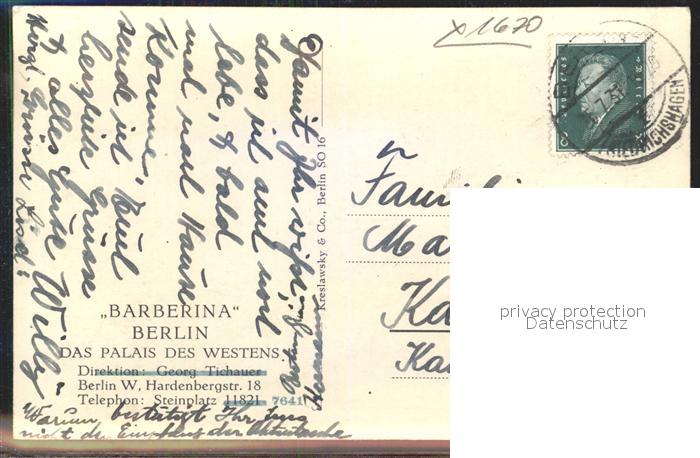 x1670
FRIEDRICHSHAGEN
Damit Ihr wißt,
dass ich auch noch
lebe, & bald
mal nach Hause
komme,
sende ich Euch
herzliche Grüsse
& alles Gute Willy
Herzl. Grüsse
Kreslawsky & Co., Berlin SO 16
„BARBERINA“
BERLIN
DAS PALAIS DES WESTENS
Direktion: Georg Tichauer
Berlin W, Hardenbergstr. 18
Telephon: Steinplatz 11821 7641
Warum bestätigt Ihr
nicht den Empfang der
Familie
Ma
Ka
Ka
privacy protection
Datenschutz